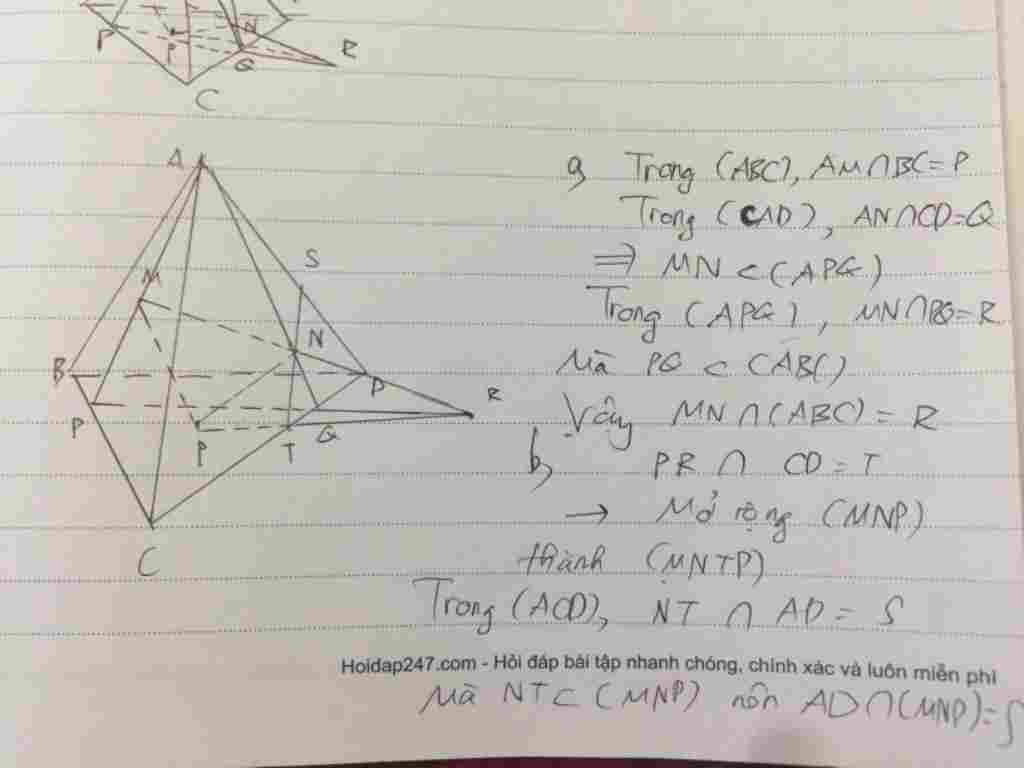 P
P
N
Q
R
C
A
S
M
N
B
D
R
P
P
T
Q
C
a, Trong (ABC), AM∩BC=P
Trong (CAD), AN∩CD=Q
⇒ MN ⊂ (APQ)
Trong (APQ), MN∩PQ=R
Mà PQ ⊂ (ABC)
Vậy MN∩(ABC) = R
b, PR ∩ CD = T
→ Mở rộng (MNP)
thành (MNTP)
Trong (ACD), NT ∩ AD = S
Hoidap247.com - Hỏi đáp bài tập nhanh chóng, chính xác và luôn miễn phí
Mà NT⊂(MNP) nên AD∩(MNP)=S